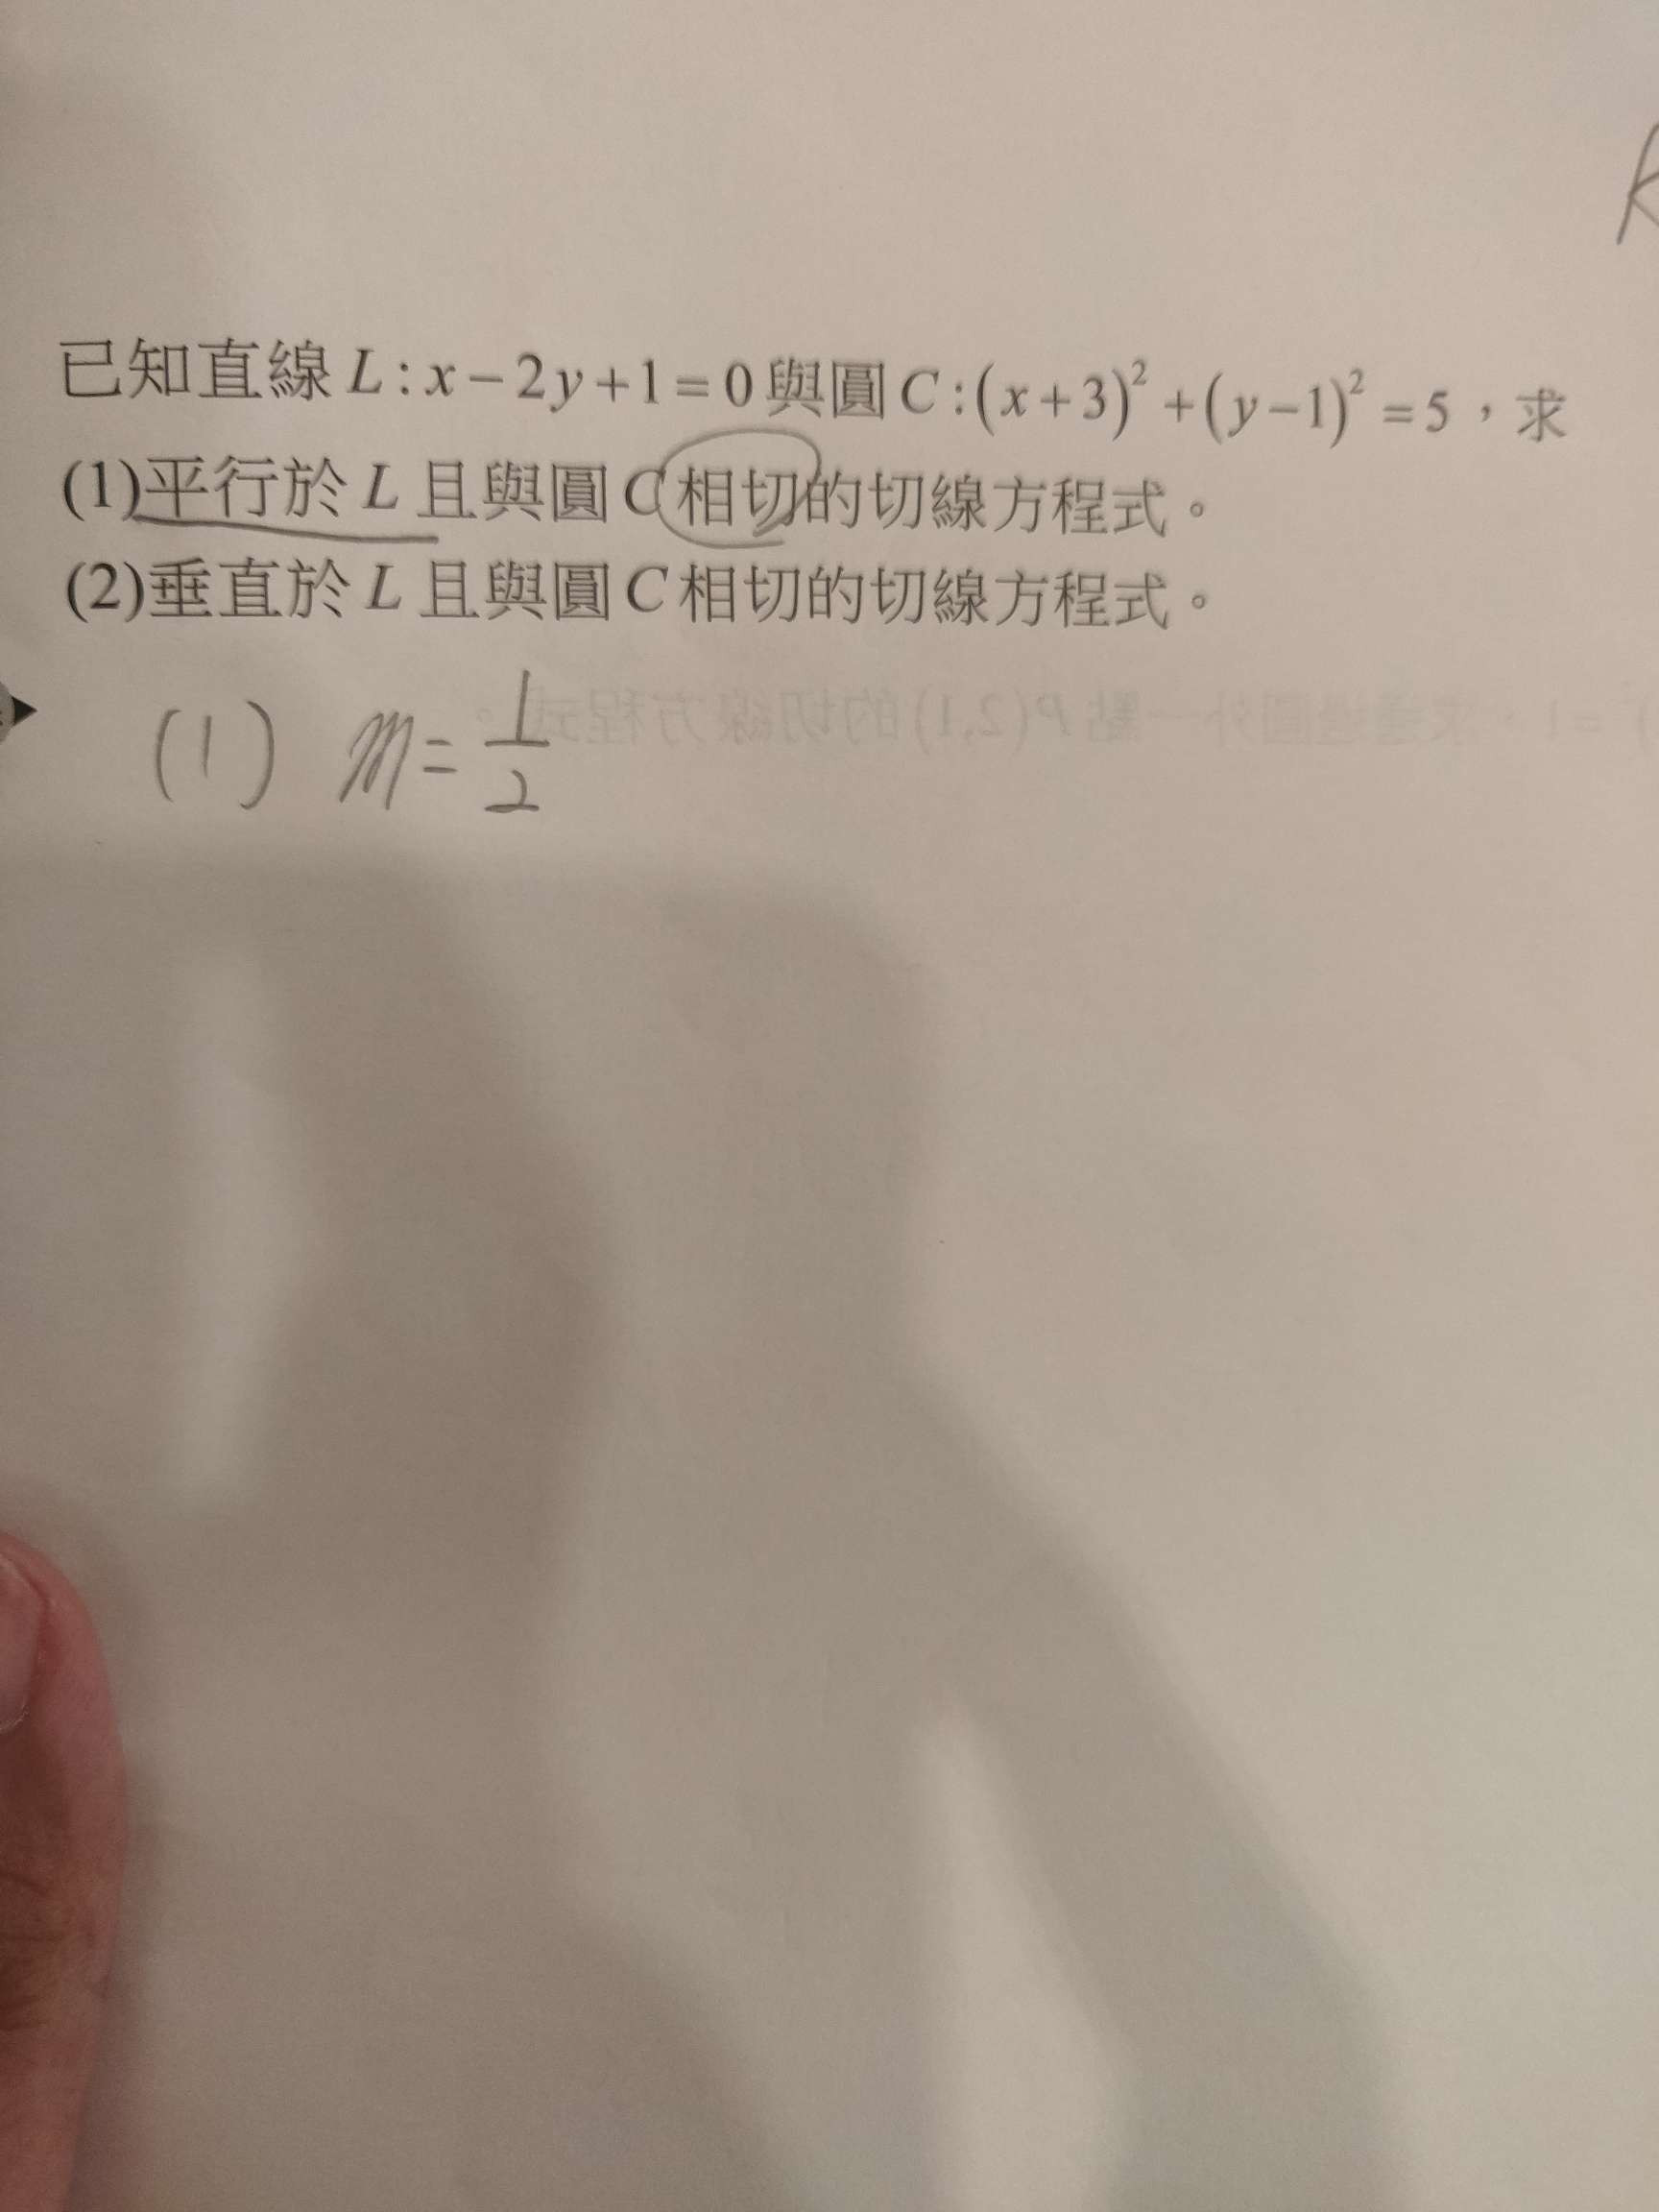 已知直線 L:x-2y+1=0與圓C:(x+3)²+(y-1)²=5，求
(1)平行於 L 且與圓C相切的切線方程式。
(2)垂直於 L 且與圓C相切的切線方程式。
(1) m=1/2